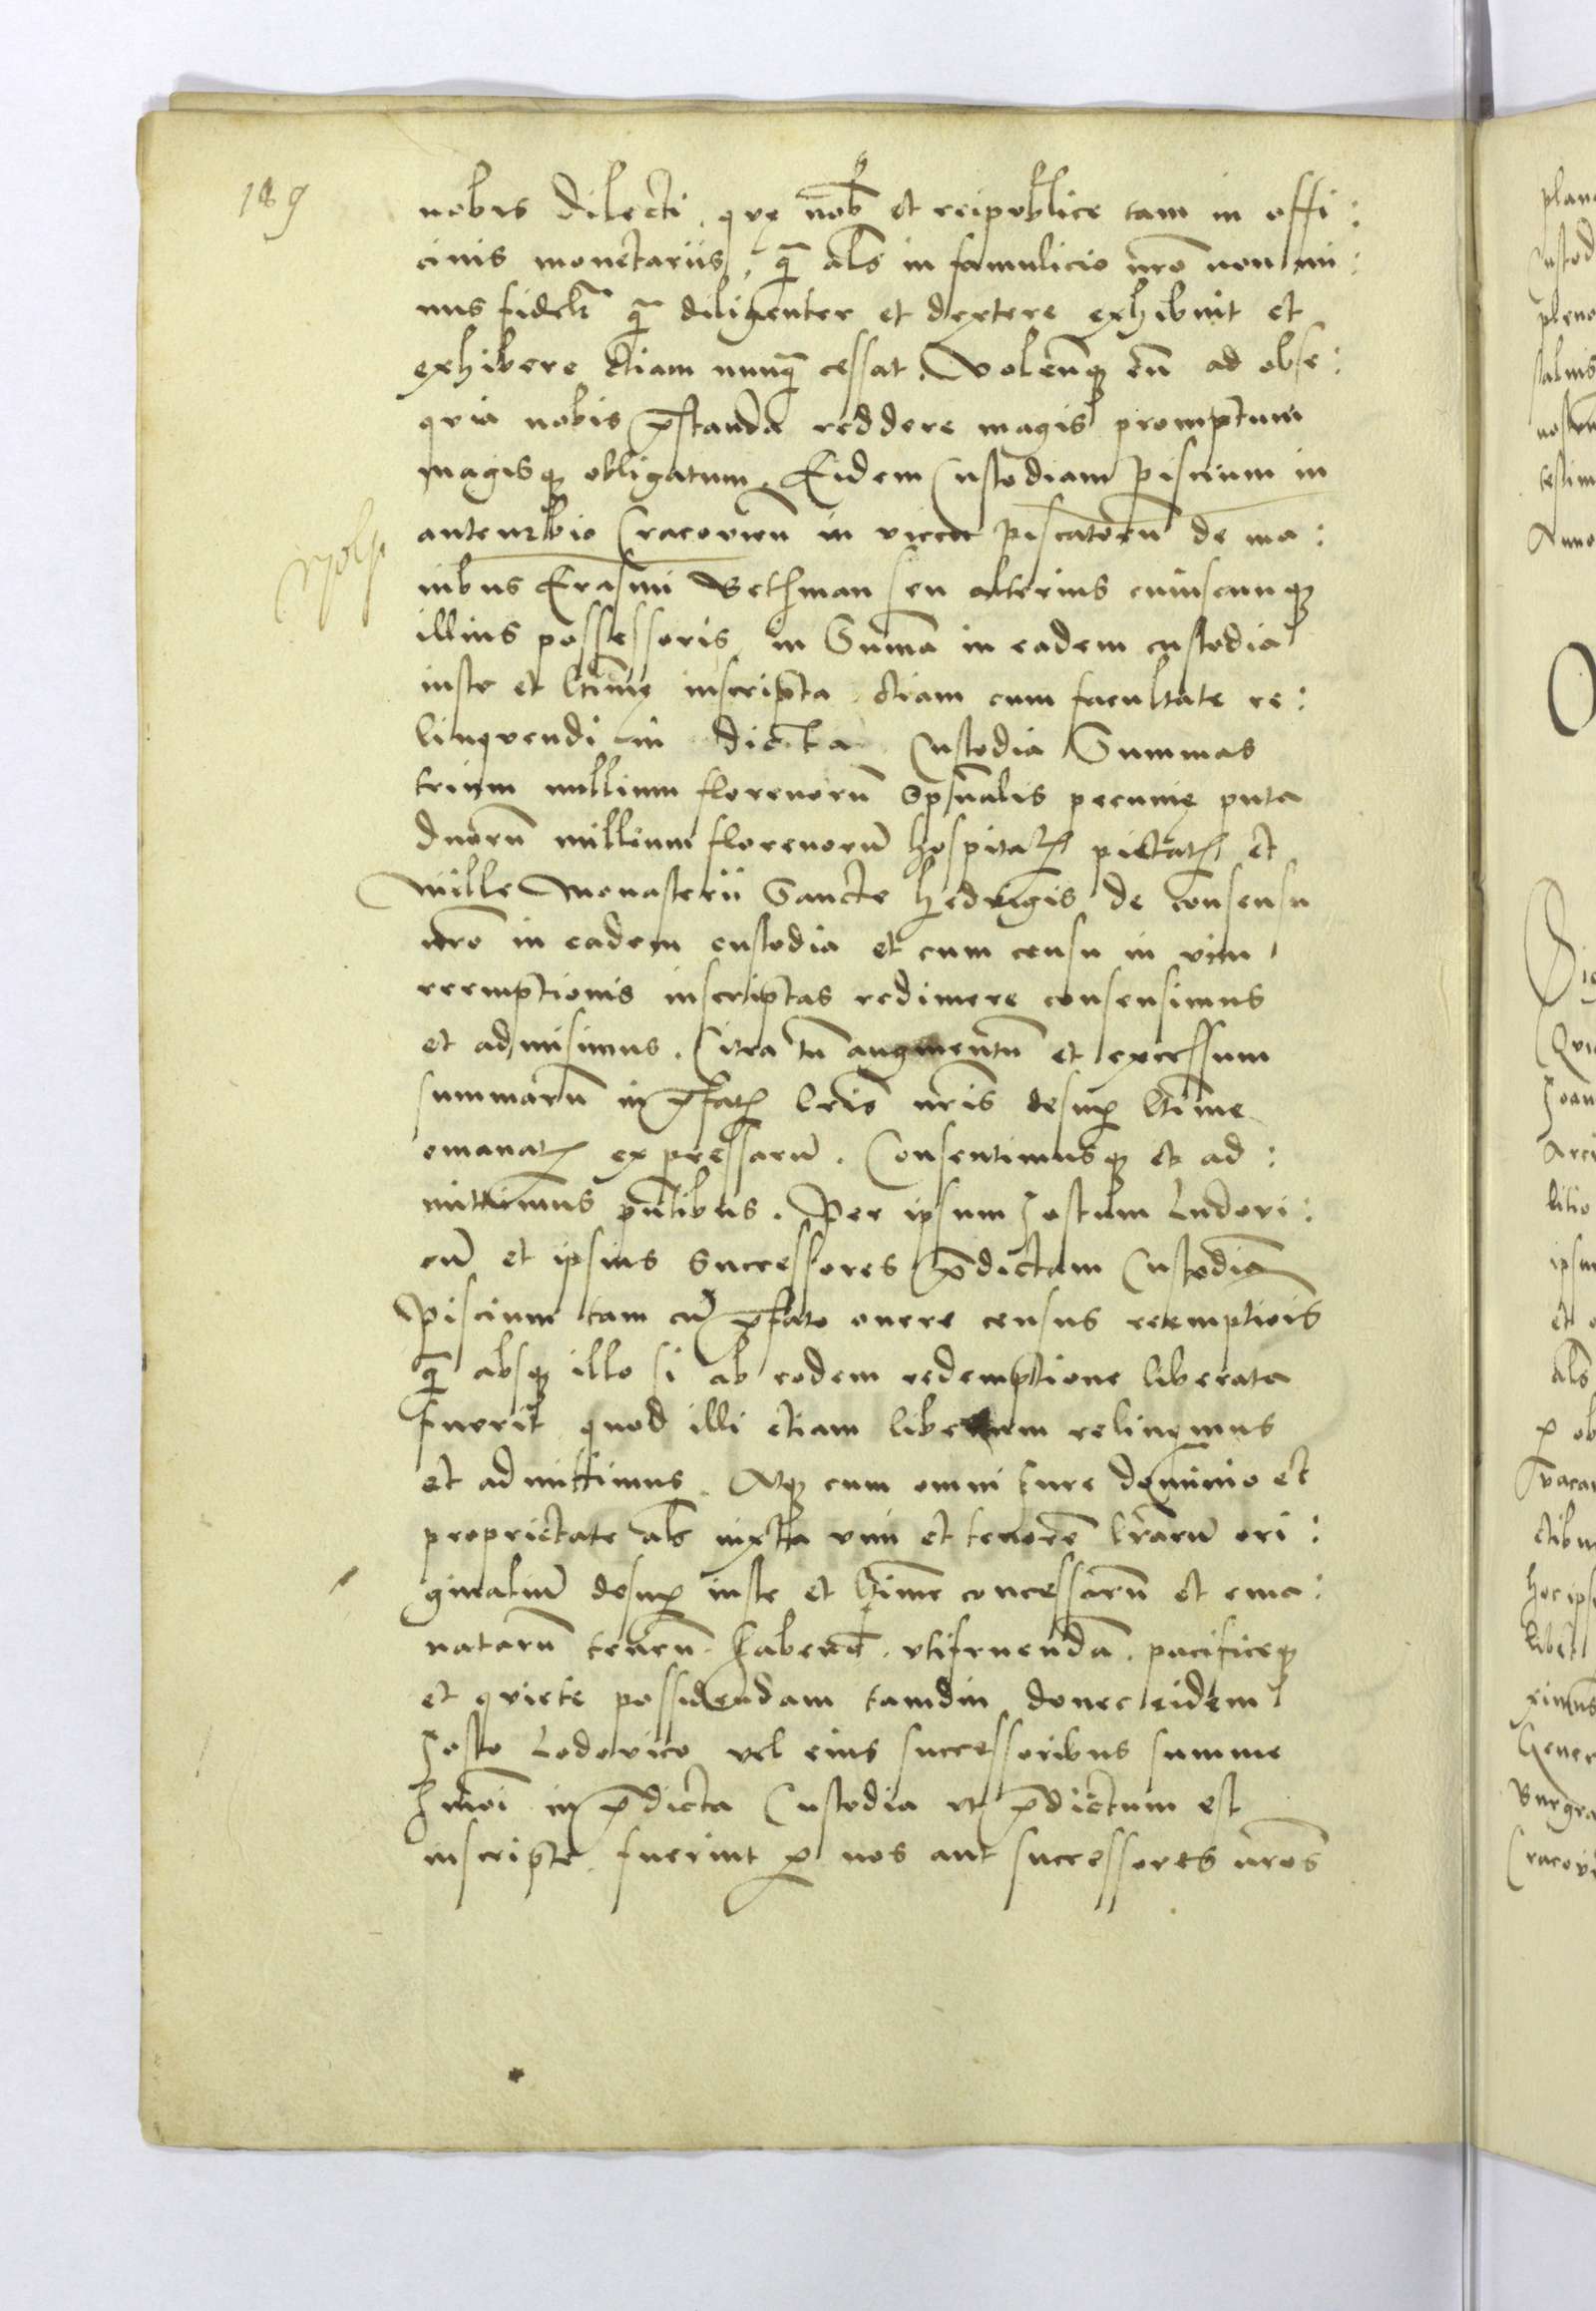 189
nobis dilecti, que nob et reipublice tam in offi:
cinis monetariis, q̃ als in famulicio nr̃o non mi:
nus fidelr̃ q̃ diligenter et dextere exhibuit et
exhibere etiam nunq̃ cessat. Volen̄q eũ ad obse:
quia nobis p̄standa reddere magis promptum
magisq obligatum. Eidem Custodiam Piscium in
anteurbio Cracovien̄ in vico piscatorũ de ma:
nibus Erasmi Bethman seu alterius cuiuscunq
illius possessoris, in Summa in eadem custodia
iuste et ltīme inscripta etiam cum facultate re:
linquendi in dicta Custodia Summas
trium millium florenorũ Spũalis pecunie puta
duorũ millium florenorũ hospital pietatis et
Mille Monasterii Sancte Hedvigis de consensu
nr̃o in eadem custodia et cum censu in vim
reemptionis inscriptas redimere consensimus
et admisimus. Citra tñ augmentũ et excessum
summarũ in p̄fatis lr̃is nr̃is desup ltīme
emanatis expressarũ. Consentimusq et ad:
mittimus pñtibus. Per ipsum Jostum Ludovi:
cũ et ipsius Successores p̄dictam Custodiã
Piscium tam cũ p̄fato onere census reemptiōis
q̃ absq illo si ab eodem redemptione liberata
fuerit quod illi etiam liberum relinqmus
et admittimus. Atq cum omni iure dominio et
proprietate als iuxta vim et tenorẽ lr̃arũ ori:
ginaliũ desup iuste et ltīme concessarũ et ema:
natarũ tenen̄. haben̄. utifruendã. pacificeq
et quiete possidendam tamdiu donec eidem
Josto Lodovico vel eius successoribus summe
hmōi in p̄dicta Custodia ut p̄dictum est
inscripte fuerint p nos aut successores nr̃os